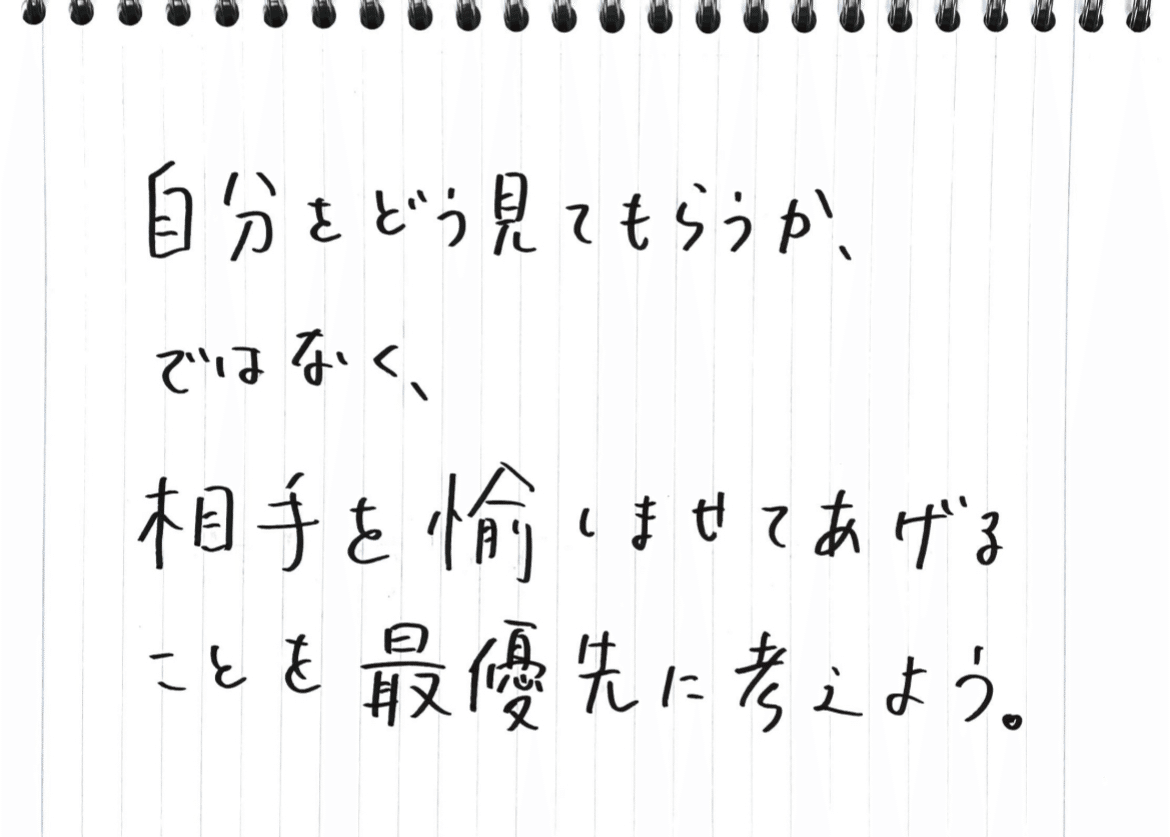 自分をどう見てもらうか、
ではなく、
相手を愉しませてあげる
ことを最優先に考えよう。